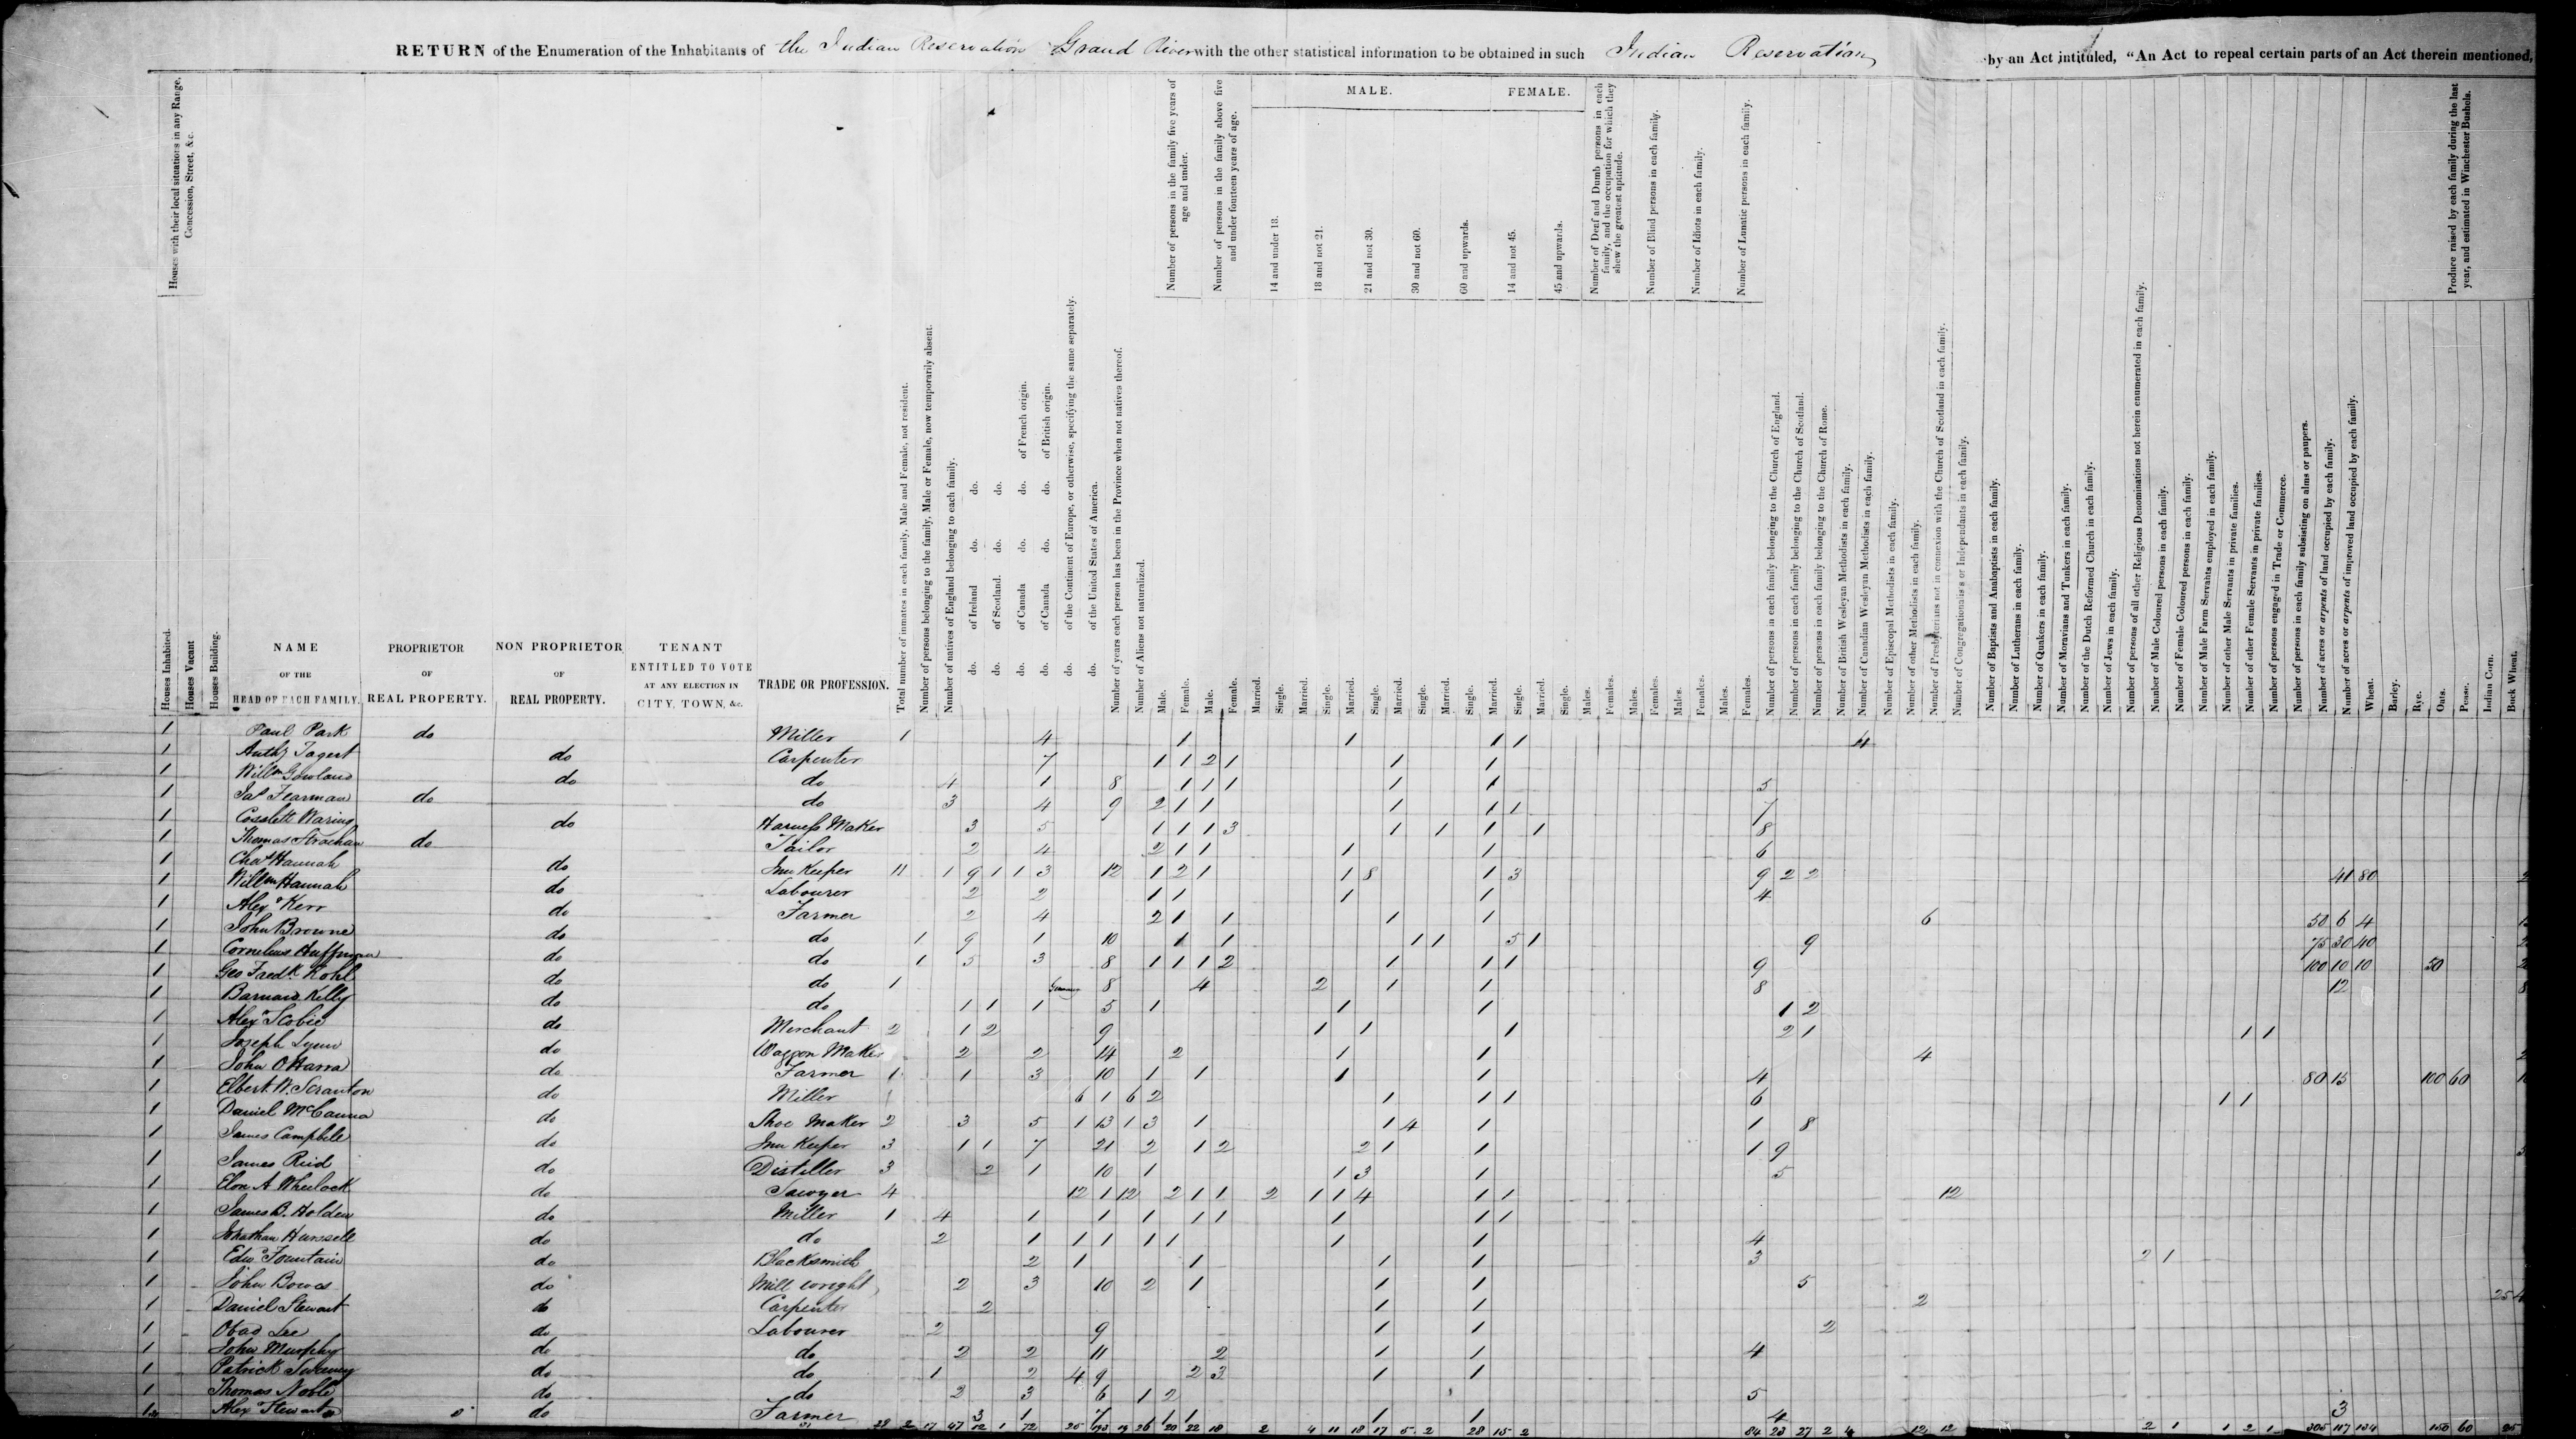 RETURN of the Enumeration of the Inhabitants of the Indian Reservation Grand River with the other statistical information to be obtained in such Indian Reservation by an Act intituled, "An Act to repeal certain parts of an Act therein mentioned,
Houses with their local situations in any Range, Concession, Street, &c.
Houses Inhabited.
Houses Vacant
Houses Building.
NAME OF THE HEAD OF EACH FAMILY.
PROPRIETOR OF REAL PROPERTY.
NON PROPRIETOR OF REAL PROPERTY.
TENANT ENTITLED TO VOTE AT ANY ELECTION IN CITY, TOWN, &c.
TRADE OR PROFESSION.
Total number of inmates in each family, Male and Female, not resident.
Number of persons belonging to the family, Male or Female, now temporarily absent.
Number of natives of England belonging to each family.
do. of Ireland do. do.
do. of Scotland. do. do.
do. of Canada do. do. of French origin.
do. of Canada do. do. of British origin.
do. of the Continent of Europe, or otherwise, specifying the same separately.
do. of the United States of America.
Number of years each person has been in the Province when not natives thereof.
Number of Aliens not naturalized.
Number of persons in the family five years of age and under.
Male.
Female.
Number of persons in the family above five and under fourteen years of age.
Male.
Female.
MALE.
14 and under 18.
Married.
Single.
18 and not 21.
Married.
Single.
21 and not 30.
Married.
Single.
30 and not 60.
Married.
Single.
60 and upwards.
Married.
Single.
FEMALE.
14 and not 45.
Married.
Single.
45 and upwards.
Married.
Single.
Number of Deaf and Dumb persons in each family, and the occupation for which they shew the greatest aptitude.
Males.
Females.
Number of Blind persons in each family.
Males.
Females.
Number of Idiots in each family.
Males.
Females.
Number of Lunatic persons in each family.
Males.
Females.
Number of persons in each family belonging to the Church of England.
Number of persons in each family belonging to the Church of Scotland.
Number of persons in each family belonging to the Church of Rome.
Number of British Wesleyan Methodists in each family.
Number of Canadian Wesleyan Methodists in each family.
Number of Episcopal Methodists in each family.
Number of other Methodists in each family.
Number of Presbyterians not in connexion with the Church of Scotland in each family.
Number of Congregationalists or Independants in each family.
Number of Baptists and Anabaptists in each family.
Number of Lutherans in each family.
Number of Quakers in each family.
Number of Moravians and Tunkers in each family.
Number of the Dutch Reformed Church in each family.
Number of Jews in each family.
Number of persons of all other Religious Denominations not herein enumerated in each family.
Number of Male Coloured persons in each family.
Number of Female Coloured persons in each family.
Number of Male Farm Servants employed in each family.
Number of other Male Servants in private families.
Number of other Female Servants in private families.
Number of persons engaged in Trade or Commerce.
Number of persons in each family subsisting on alms or paupers.
Number of acres or arpents of land occupied by each family.
Number of acres or arpents of improved land occupied by each family.
Produce raised by each family during the last year, and estimated in Winchester Bushels.
Wheat.
Barley.
Rye.
Oats.
Pease.
Indian Corn.
Buck Wheat.
1 Paul Park do Miller 1 4 1 1 1 1 4
1 Anthy Tagert do Carpenter 7 1 1 2 1 1 1
1 Willm Gowland do do 4 1 8 1 1 1 1 1 5
1 Jas Fearman do do 3 4 9 2 1 1 1 1 1 7
1 Cosslett Waring do Harness Maker 3 5 1 1 1 3 1 1 1 1 8
1 Thomas Strachan do Tailor 2 4 2 1 1 1 1 6
1 Chas Hannah do Inn Keeper 11 1 9 1 1 3 12 1 2 1 1 8 1 3 9 2 2 41 80 2
1 Willm Hannah do Labourer 2 2 1 1 1 1 4
1 Alexr Kerr do Farmer 2 4 2 1 1 1 1 6 50 6 4
1 John Browne do do 1 9 1 10 1 1 1 1 5 1 9 75 30 40 2
1 Cornelius Huffman do do 1 5 3 8 1 1 1 2 1 1 1 9 100 10 10 50 2
1 Geo Fredk Kohl do do 1 Germany 8 4 2 1 1 8 12 8
1 Barnard Kelly do do 1 1 1 5 1 1 1 1 2
1 Alexr Scobie do Merchant 2 1 2 9 1 1 1 2 1 1 1
1 Joseph Lynn do Waggon Maker 2 2 14 2 1 1 4 2
1 John O'Harra do Farmer 1 1 3 10 1 1 1 1 4 80 15 100 60
1 Elbert W. Scranton do Miller 6 1 6 2 1 1 1 6 1 1
1 Daniel McCanna do Shoe Maker 2 3 5 1 13 1 3 1 1 4 1 1 8
1 James Campbell do Inn Keeper 3 1 1 7 21 2 1 2 2 1 1 1 9 3
1 James Reid do Distiller 3 2 1 10 1 1 3 1 5
1 Elon A Wheelock do Sawyer 4 12 1 12 2 1 1 2 1 1 4 1 1 12
1 James B. Holden do Miller 1 4 1 1 1 1 1 1 1 1
1 Johnathan Hunssell do do 2 1 1 1 1 1 1 1 4
1 Edwd Fountain do Blacksmith 2 1 1 1 1 3 2 1
1 John Bowes do Mill wright 2 3 10 2 1 1 1 5
1 Daniel Stewart do Carpenter 2 1 1 2 25
1 Obad Lee do Labourer 2 9 1 1 2
1 John Murphy do do 2 2 11 2 1 1 4
1 Patrick Sweeney do do 1 2 4 9 2 3 1 1
1 Thomas Noble do do 2 3 6 1 2 5
1 Alexr Stewart do Farmer 3 1 7 1 1 1 1 4 3
29 2 17 47 12 1 72 25 193 19 26 20 22 18 2 4 11 18 17 5 2 28 15 2 84 23 27 2 4 12 12 2 1 1 2 1 305 117 134 150 60 25